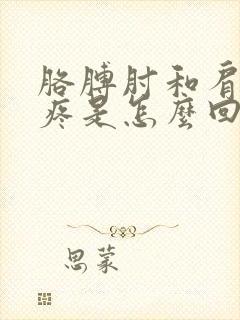 胳膊肘和肩
疼是怎麼回
思蒙